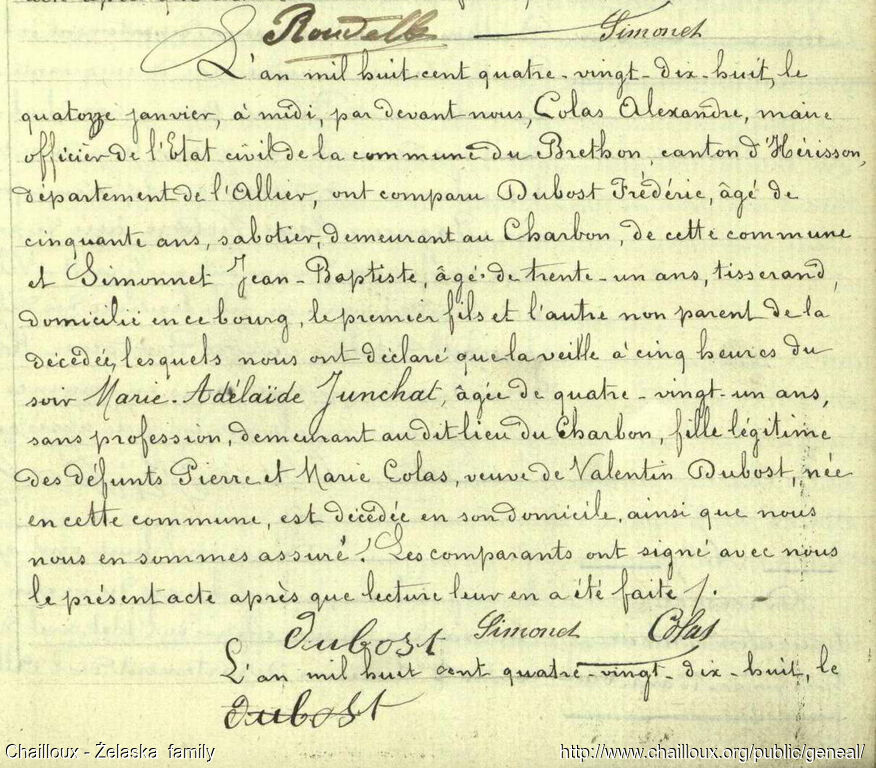 Roudelle Simonet
L'an mil huit cent quatre-vingt-dix-huit, le
quatorze janvier, à midi, par devant nous, Colas Alexandre, maire
officier de l'Etat civil de la commune du Brethon, canton d'Hérisson,
département de l'Allier, ont comparu Dubost Frédéric, âgé de
cinquante ans, sabotier, demeurant au Charbon, de cette commune
et Simonnet Jean-Baptiste, âgé de trente-un ans, tisserand,
domicilié en ce bourg, le premier fils et l'autre non parent de la
décédée, lesquels nous ont déclaré que la veille à cinq heures du
soir Marie-Adélaïde Junchat, âgée de quatre-vingt-un ans,
sans profession, demeurant au dit lieu du Charbon, fille légitime
des défunts Pierre et Marie Colas, veuve de Valentin Dubost, née
en cette commune, est décédée en son domicile, ainsi que nous
nous en sommes assuré. Les comparants ont signé avec nous
le présent acte après que lecture leur en a été faite.
Dubost Simonet Colas
L'an mil huit cent quatre-vingt-dix-huit, le
Dubost
Chailloux - Želaska family http://www.chailloux.org/public/geneal/